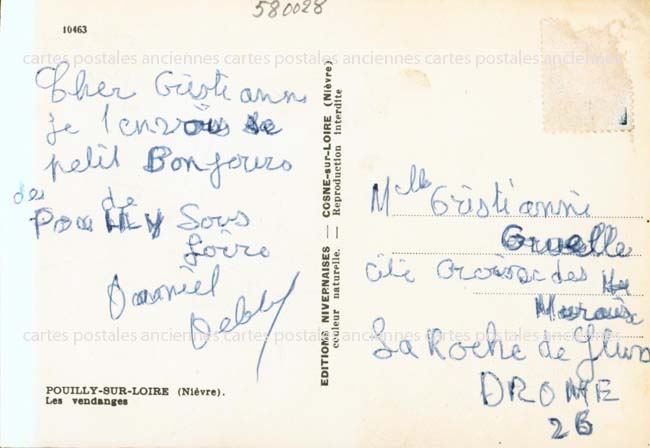 580028
10463
cartes postales anciennes cartes postales anciennes cartes postales anciennes
Cher Cristianne
je l'envois se
petit Bonjours
des de
Pouilly Sous
Loire
Danniel
Debby
POUILLY-SUR-LOIRE (Nièvre).
Les vendanges
EDITIONS NIVERNAISES. — COSNE-sur-LOIRE (Nièvre)
couleur naturelle. — Reproduction Interdite
Mlle Cristianni
Gruelle
cité croixe des
Muraix
La Roche de Gluns
DROME
26
cartes postales anciennes cartes postales anciennes cartes postales anciennes
cartes postales anciennes cartes postales anciennes cartes postales anciennes